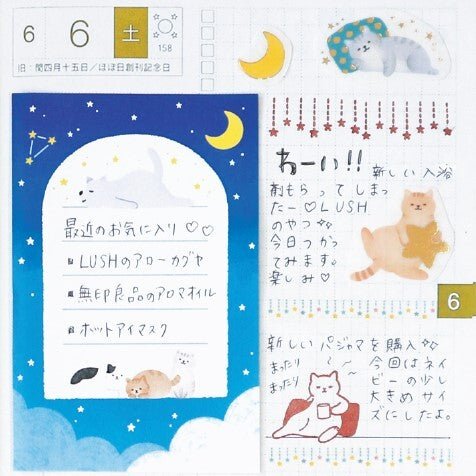 6 6 土
158
旧:閏四月十五日/ほぼ日創刊記念日
最近のお気に入り♡♡
LUSHのアローカグヤ
無印良品のアロマオイル
ホットアイマスク
わーい!!
新しい入浴
剤もらってしまっ
たー♡LUSH
のやつ
今日つかっ
てみます。
楽しみ♡
6
新しいパジャマを購入
まったり
まったり
今回はネイ
ビーの少し
大きめサイ
ズにしたよ。